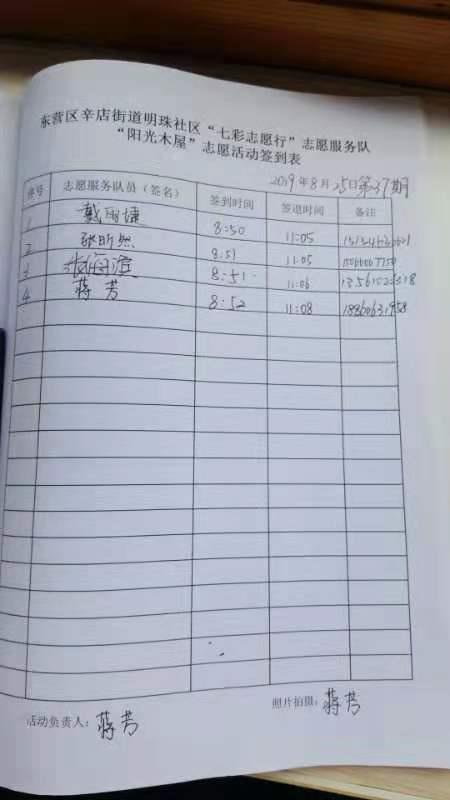 东营区辛店街道明珠社区“七彩志愿行”志愿服务队
“阳光木屋”志愿活动签到表
2019年8月25日第37期
序号 志愿服务队员（签名） 签到时间 签退时间 备注
1 戴雨捷 8:50 11:05
2 张昕然 8:51 11:05
3 8:51 11:06
4 蒋芳 8:52 11:08
活动负责人：蒋芳 照片拍摄：蒋芳